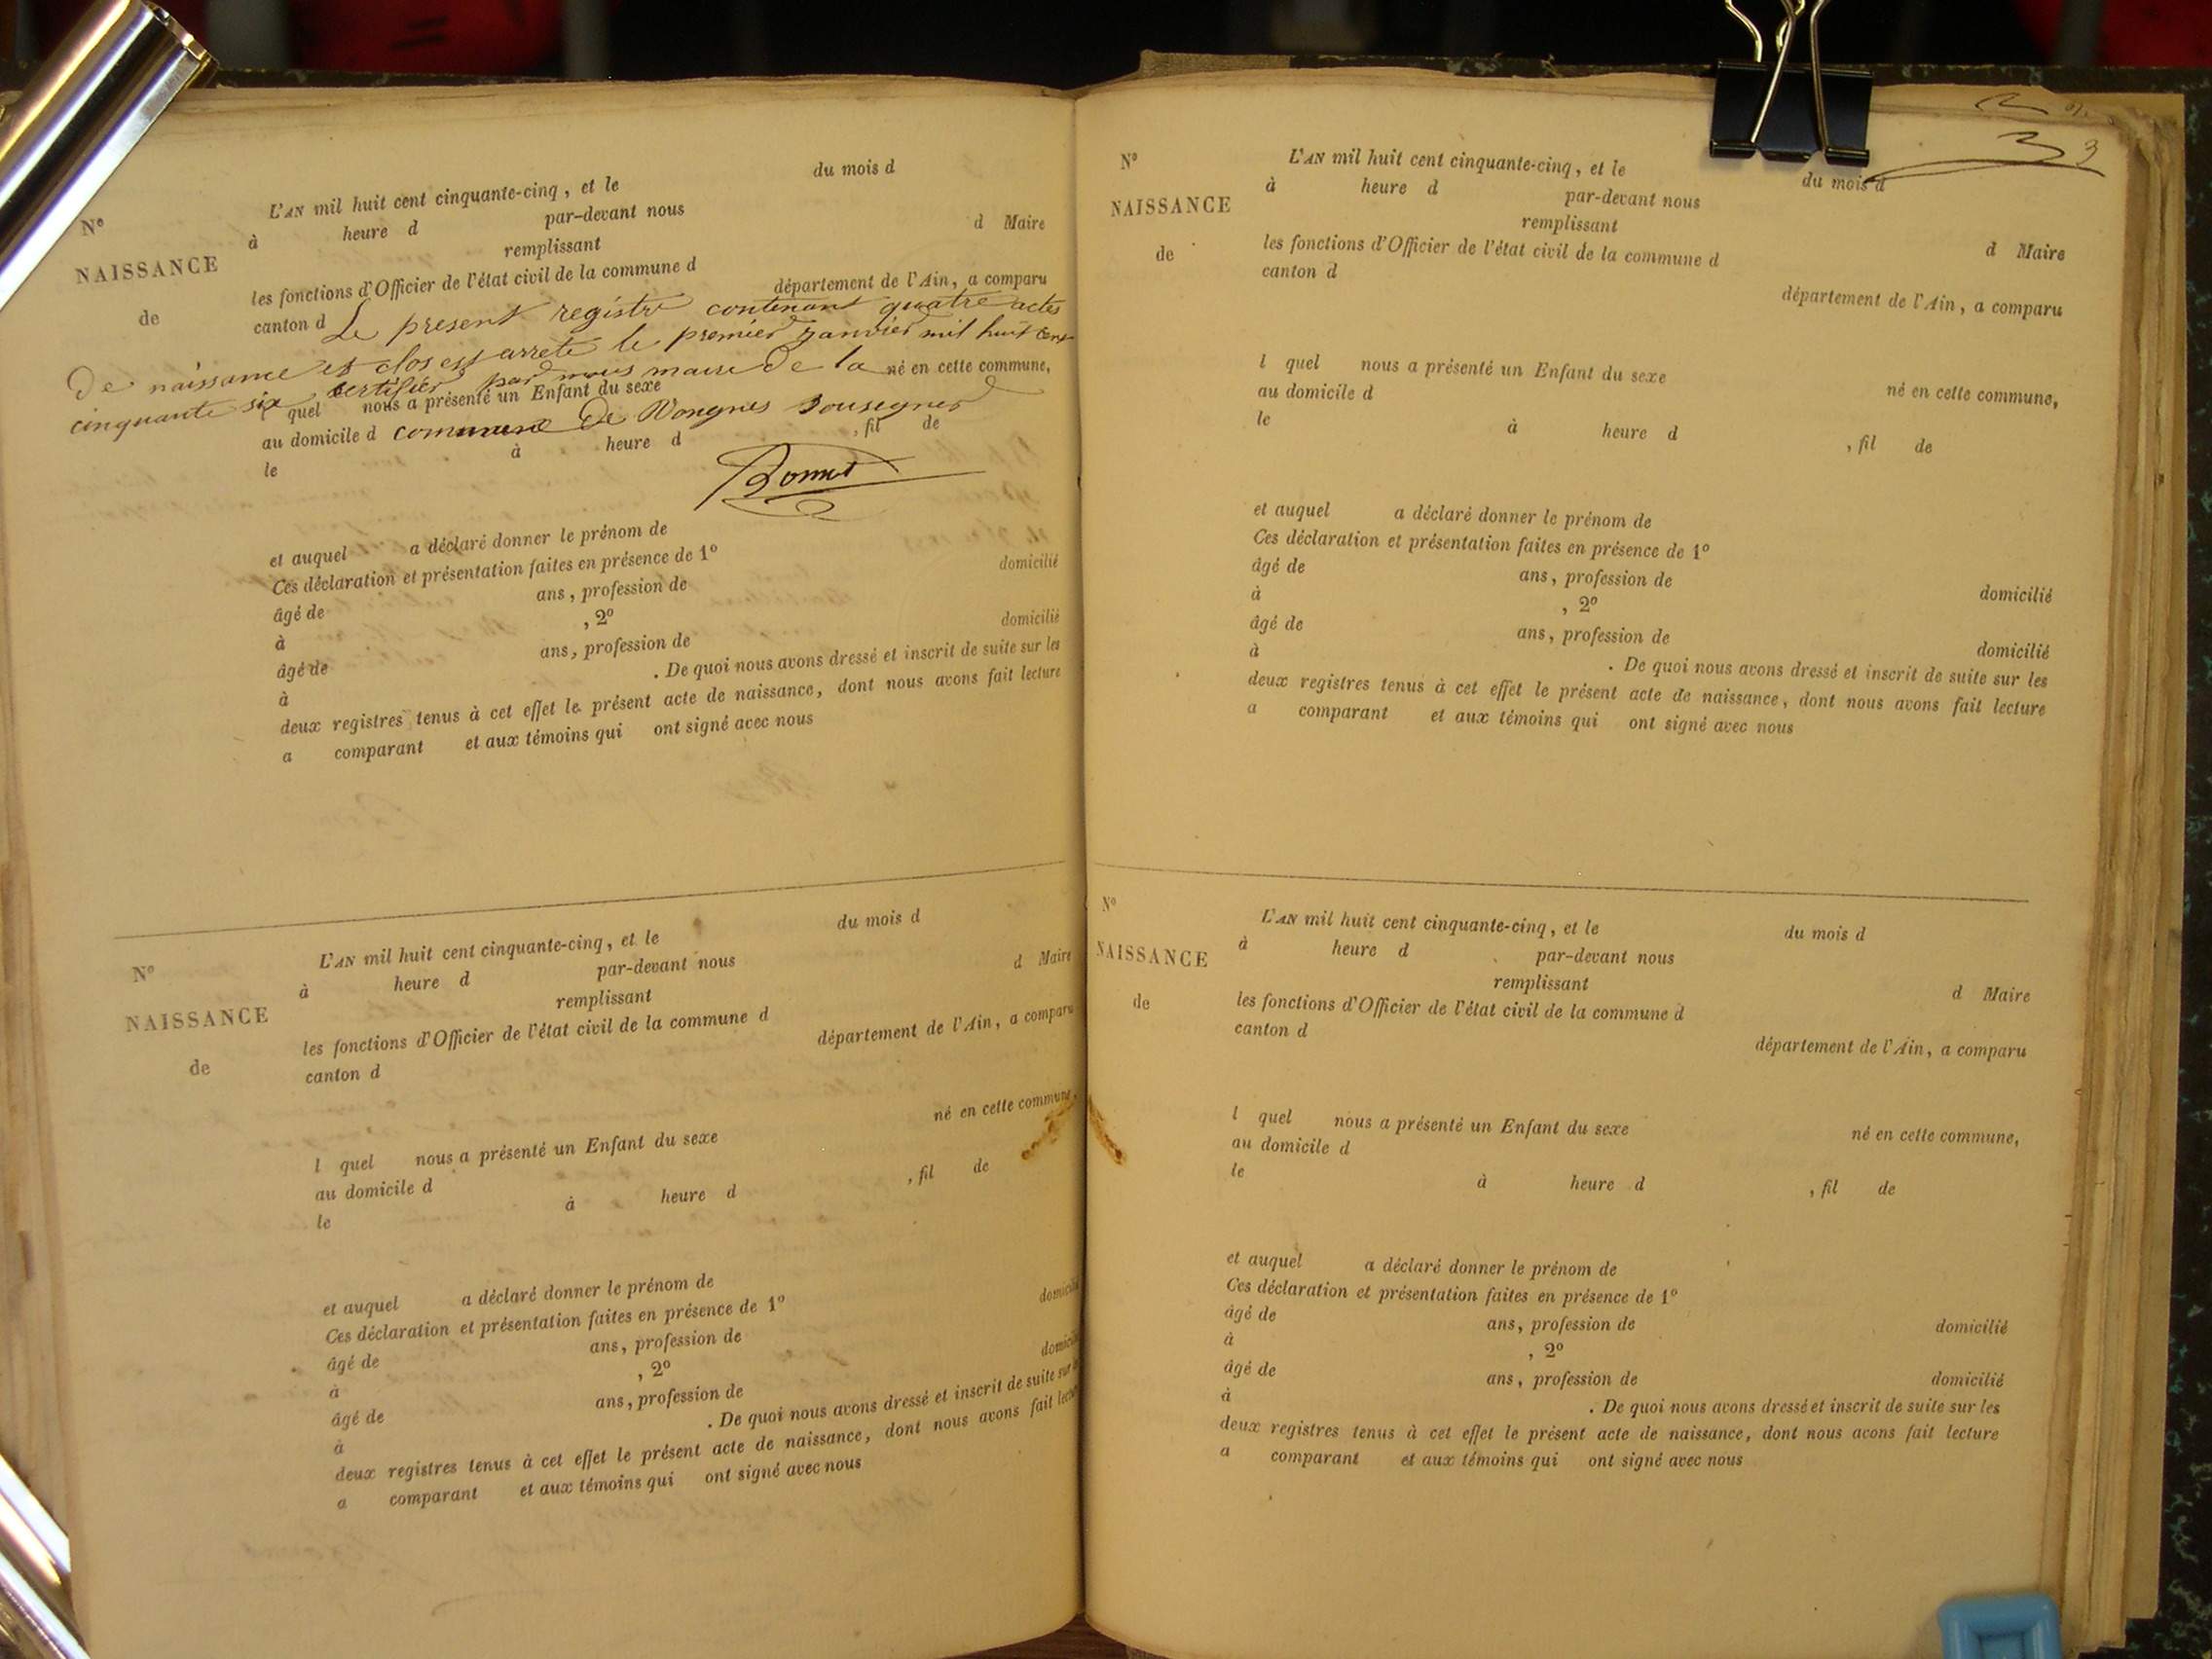 L'AN mil huit cent cinquante-cinq, et le du mois d
N° à heure d par-devant nous
NAISSANCE remplissant d Maire
les fonctions d'Officier de l'état civil de la commune d
de canton d département de l'Ain, a comparu
Le present registre contenant quatre actes
De naissance et clos est arrete le premier janvier mil huit cent
cinquante six certifier par nous maire De la né en cette commune,
quel nous a présenté un Enfant du sexe
au domicile d commune De Vongnes Sousegner
le à heure d , fil de
Bonnet
et auquel a déclaré donner le prénom de
Ces déclaration et présentation faites en présence de 1°
âgé de ans, profession de domicilié
à , 2°
âgé de ans, profession de domicilié
à . De quoi nous avons dressé et inscrit de suite sur les
deux registres tenus à cet effet le présent acte de naissance, dont nous avons fait lecture
a comparant et aux témoins qui ont signé avec nous
L'AN mil huit cent cinquante-cinq, et le du mois d
N° à heure d par-devant nous
NAISSANCE remplissant d Maire
les fonctions d'Officier de l'état civil de la commune d
de canton d département de l'Ain, a comparu
l quel nous a présenté un Enfant du sexe né en cette commune,
au domicile d
le à heure d , fil de
et auquel a déclaré donner le prénom de
Ces déclaration et présentation faites en présence de 1°
âgé de ans, profession de domicilié
à , 2°
âgé de ans, profession de domicilié
à . De quoi nous avons dressé et inscrit de suite sur les
deux registres tenus à cet effet le présent acte de naissance, dont nous avons fait lecture
a comparant et aux témoins qui ont signé avec nous
3
N° L'AN mil huit cent cinquante-cinq, et le du mois d
à heure d par-devant nous
NAISSANCE remplissant d Maire
de les fonctions d'Officier de l'état civil de la commune d
canton d département de l'Ain, a comparu
l quel nous a présenté un Enfant du sexe né en cette commune,
au domicile d
le à heure d , fil de
et auquel a déclaré donner le prénom de
Ces déclaration et présentation faites en présence de 1°
âgé de ans, profession de domicilié
à , 2°
âgé de ans, profession de domicilié
à . De quoi nous avons dressé et inscrit de suite sur les
deux registres tenus à cet effet le présent acte de naissance, dont nous avons fait lecture
a comparant et aux témoins qui ont signé avec nous
N° L'AN mil huit cent cinquante-cinq, et le du mois d
à heure d par-devant nous
NAISSANCE remplissant d Maire
de les fonctions d'Officier de l'état civil de la commune d
canton d département de l'Ain, a comparu
l quel nous a présenté un Enfant du sexe né en cette commune,
au domicile d
le à heure d , fil de
et auquel a déclaré donner le prénom de
Ces déclaration et présentation faites en présence de 1°
âgé de ans, profession de domicilié
à , 2°
âgé de ans, profession de domicilié
à . De quoi nous avons dressé et inscrit de suite sur les
deux registres tenus à cet effet le présent acte de naissance, dont nous avons fait lecture
a comparant et aux témoins qui ont signé avec nous